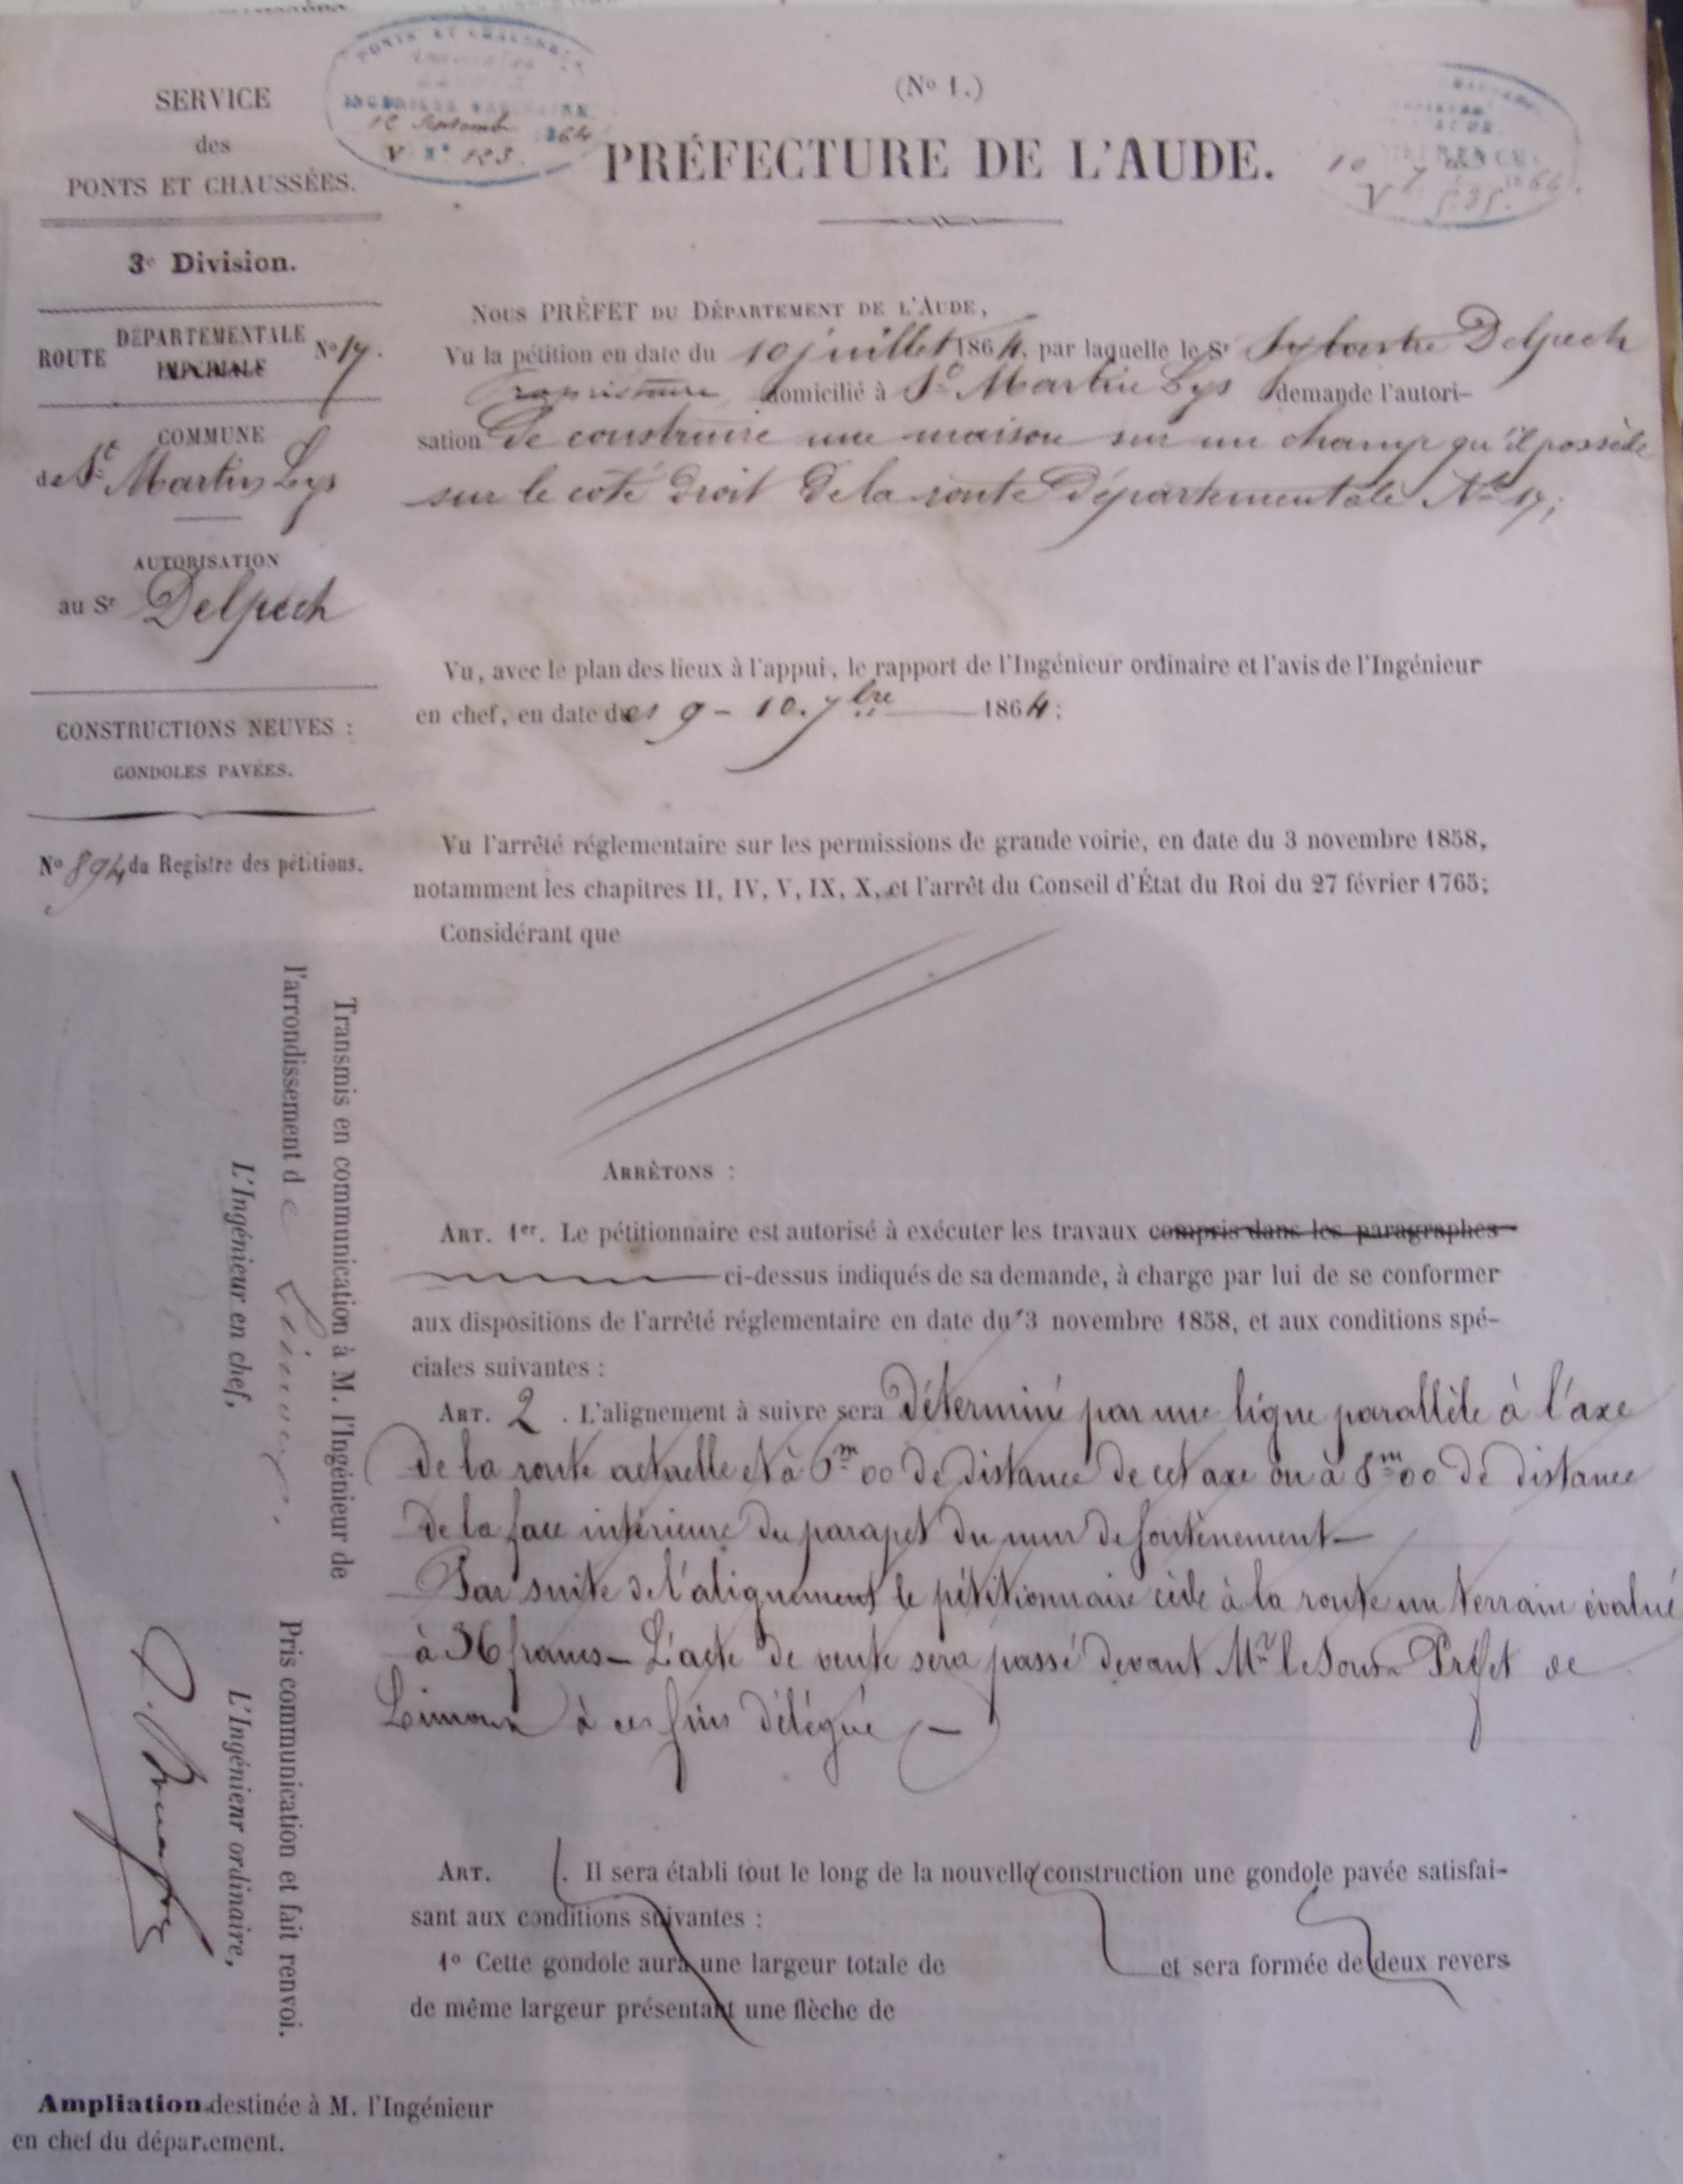 PONTS ET CHAUSSÉES
INGÉNIEUR ORDINAIRE
12 Septembre 1864
V N° 123.
SERVICE
des
PONTS ET CHAUSSÉES.
(No 1.)
PRÉFECTURE DE L'AUDE.
10 7 1864.
V 535.
3e Division.
ROUTE DÉPARTEMENTALE No 17.
IMPÉRIALE
COMMUNE
de St Martin Lys
AUTORISATION
au Sr Delpech
CONSTRUCTIONS NEUVES :
GONDOLES PAVÉES.
No 894 du Registre des pétitions.
Nous PRÉFET du Département de l'Aude,
Vu la pétition en date du 10 juillet 1864, par laquelle le Sr Sylvestre Delpech
propriétaire domicilié à St Martin Lys demande l'autori-
sation de construire une maison sur un champ qu'il possède
sur le coté droit de la route départementale No 17;
Vu, avec le plan des lieux à l'appui, le rapport de l'Ingénieur ordinaire et l'avis de l'Ingénieur
en chef, en date des 9 - 10. 7bre 1864;
Vu l'arrêté réglementaire sur les permissions de grande voirie, en date du 3 novembre 1858,
notamment les chapitres II, IV, V, IX, X, et l'arrêt du Conseil d'État du Roi du 27 février 1765;
Considérant que
Arrêtons :
Art. 1er. Le pétitionnaire est autorisé à exécuter les travaux compris dans les paragraphes
ci-dessus indiqués de sa demande, à charge par lui de se conformer
aux dispositions de l'arrêté réglementaire en date du 3 novembre 1858, et aux conditions spé-
ciales suivantes :
Art. 2 . L'alignement à suivre sera déterminé par une ligne parallèle à l'axe
de la route actuelle et à 6m00 de distance de cet axe ou à 8m00 de distance
de la face intérieure du parapet du mur de soutènement —
Par suite de l'alignement le pétitionnaire cède à la route un terrain évalué
à 36 francs — L'acte de vente sera passé devant Mr le Sous-Préfet de
Limoux à ces fins délégué —
Art. . Il sera établi tout le long de la nouvelle construction une gondole pavée satisfai-
sant aux conditions suivantes :
1o Cette gondole aura une largeur totale de et sera formée de deux revers
de même largeur présentant une flèche de
Transmis en communication à M. l'Ingénieur de
l'arrondissement de Limoux.
L'Ingénieur en chef,
Pris communication et fait renvoi.
L'Ingénieur ordinaire,
Ampliation destinée à M. l'Ingénieur
en chef du département.